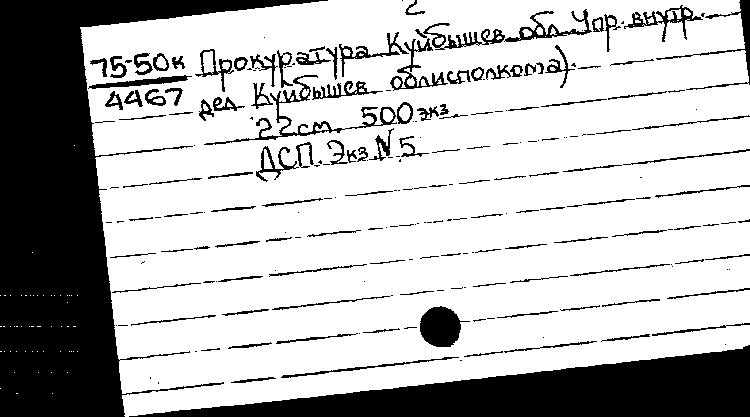 2
75-50к Прокуратура Куйбышев. обл. Упр. внутр.
4467 дел Куйбышев. облисполкома).
22 см. 500 экз.
ДСП. Экз. N 5.